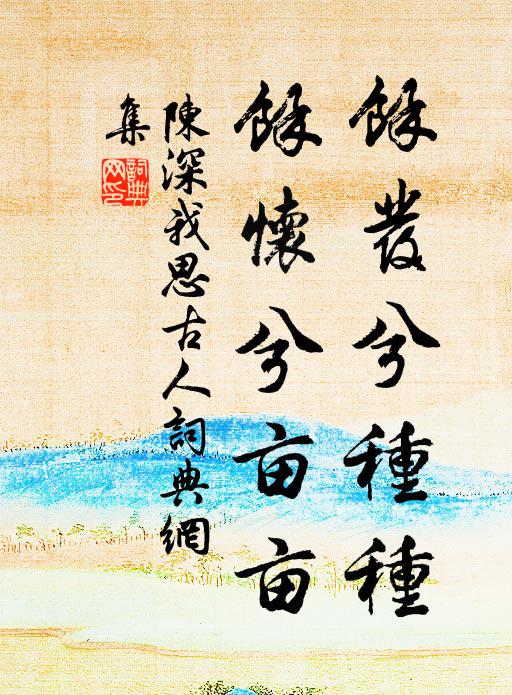 餘發兮種種
餘懷兮亩亩
陳深我思古人詞典網
集
詞典
网印